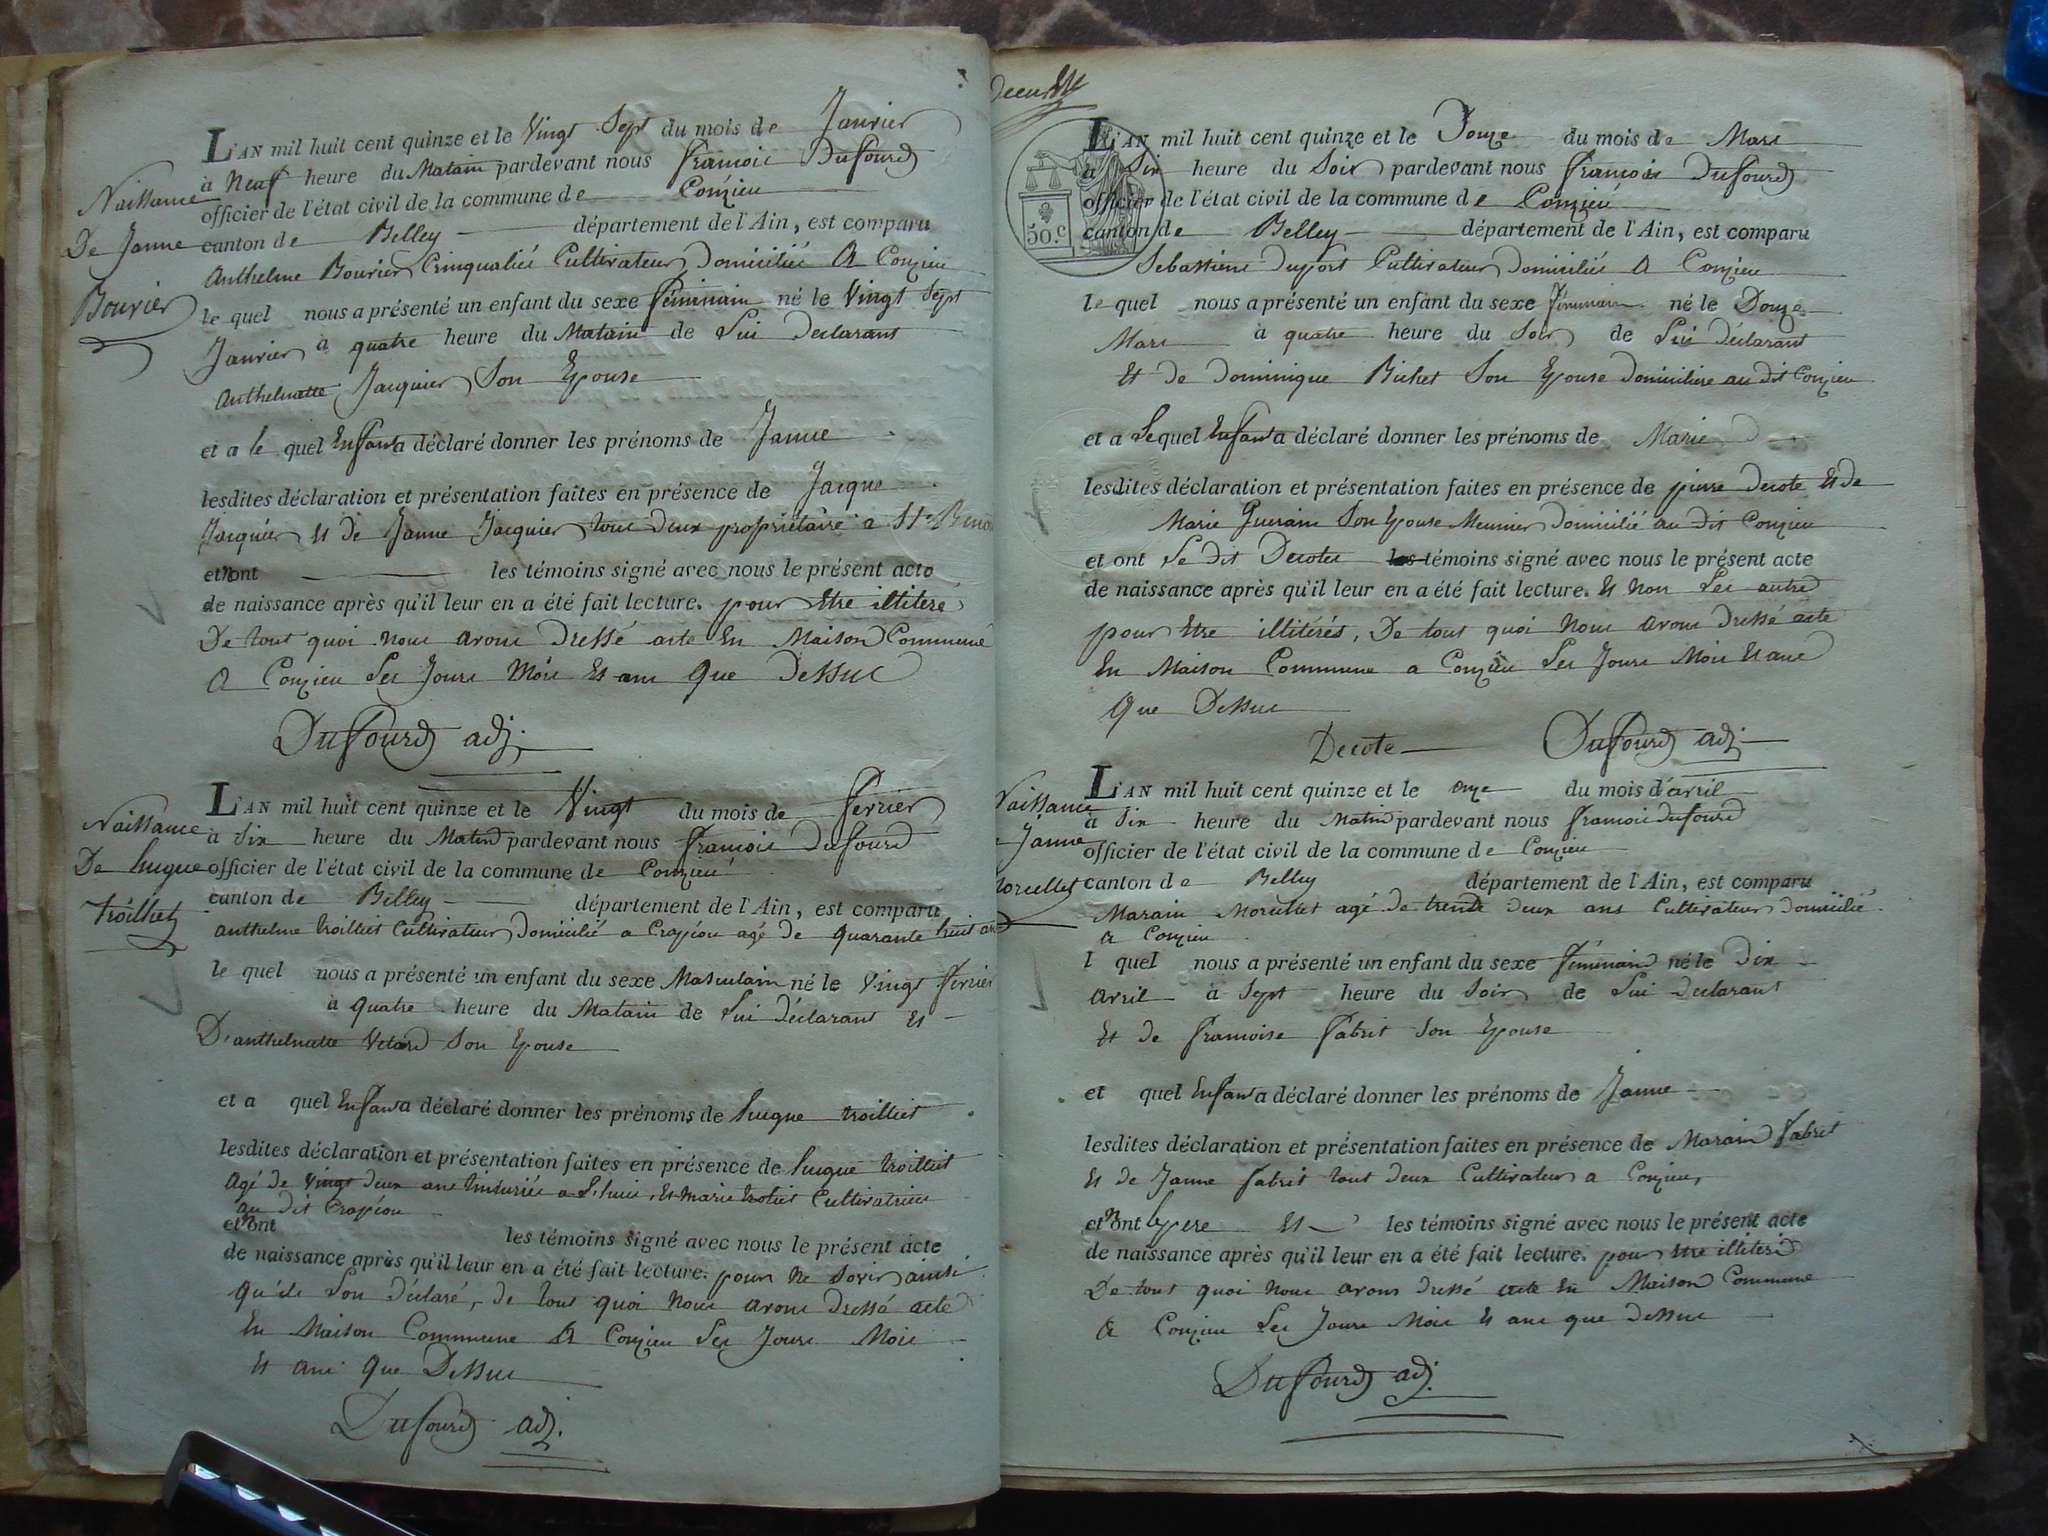 Naissance
De Janne
Bouvier
L'AN mil huit cent quinze et le Vingt Sept du mois de Janvier
à Neuf heure du Matain pardevant nous francois Dufourd
officier de l'état civil de la commune de Conzieu
canton de Belley département de l'Ain, est comparu
Anthelme Bouvier Cultivateur Domicilié A Conzieu
le quel nous a présenté un enfant du sexe féminain né le Vingt Sept
Janvier à quatre heure du Matain de Lui Declarant
Anthelmette Jacquier Son Epouse
et a le quel Enfant a déclaré donner les prénoms de Janne
lesdites déclaration et présentation faites en présence de Jacque
Jacquier et de Janne Jacquier tous deux propriétaire a St
et n'ont les témoins signé avec nous le présent acte
de naissance après qu'il leur en a été fait lecture. pour Etre illitere
De tout quoi nous avons Dressé acte En Maison Commune
A Conzieu Les Jours Mois Et ans Que Dessus
Dufourd adj.
Naissance
De hugue
troilliet
L'AN mil huit cent quinze et le Vingt du mois de fevrier
à dix heure du Matin pardevant nous francois Dufourd
officier de l'état civil de la commune de Conzieu
canton de Belley département de l'Ain, est comparu
anthelme troilliet Cultivateur Domicilié a Crapéou agé de quarante huit ans
le quel nous a présenté un enfant du sexe Masculain né le Vingt fevrier
à quatre heure du Matain de Lui déclarant Et
D'anthelmette Son Epouse
et a quel Enfant a déclaré donner les prénoms de hugue troilliet
lesdites déclaration et présentation faites en présence de hugue troilliet
Agé de Vingt deux ans Et Marie Cultivatrice
au dit Crapéou
et n'ont les témoins signé avec nous le présent acte
de naissance après qu'il leur en a été fait lecture. pour ne Savoir ainsi
qu'ils L'on déclaré, de tout quoi nous avons dressé acte
En Maison Commune A Conzieu Les Jours Mois
Et ans que Dessus
Dufourd adj.
50.c
L'AN mil huit cent quinze et le Douze du mois de Mars
à Six heure du Soir pardevant nous francois Dufourd
officier de l'état civil de la commune de Conzieu
canton de Belley département de l'Ain, est comparu
Sebastiens duport Cultivateur domicilié A Conzieu
le quel nous a présenté un enfant du sexe féminain né le Douze
Mars à quatre heure du Soir de Lui déclarant
Et de dominique Bichet Son Epouse domiciliere au dit Conzieu
et a Lequel Enfant a déclaré donner les prénoms de Marie
lesdites déclaration et présentation faites en présence de pierre decote Et de
Marie Guerain Son Epouse Meunier domicilié au dit Conzieu
et ont Le dit Decotes les témoins signé avec nous le présent acte
de naissance après qu'il leur en a été fait lecture. Et Non Les autre
pour Etre illitérés, De tout quoi Nous avons Dressé acte
En Maison Commune a Conzieu Les Jours Mois Et ans
Que Dessus
Decote Dufourd adj.
Naissance
Janne
morcellet
L'AN mil huit cent quinze et le onze du mois d'avril
à dix heure du Matin pardevant nous francois dufourd
officier de l'état civil de la commune de Conzieu
canton de Belley département de l'Ain, est comparu
Marain Morcellet agé de trente deux ans Cultivateur domicilié
A Conzieu
l quel nous a présenté un enfant du sexe féminain né le Dix
avril à Sept heure du Soir de Lui declarant
Et de francoise fabrit Son Epouse
et quel Enfant a déclaré donner les prénoms de Janne
lesdites déclaration et présentation faites en présence de Marain fabrit
Et de Janne fabrit tout deux Cultivateur a Conzieu,
et n'ont le pere Et les témoins signé avec nous le présent acte
de naissance après qu'il leur en a été fait lecture. pour Etre illiteré
De tout quoi nous avons dressé acte En Maison Commune
A Conzieu Les Jours Mois Et ans que Dessus
Dufourd adj.